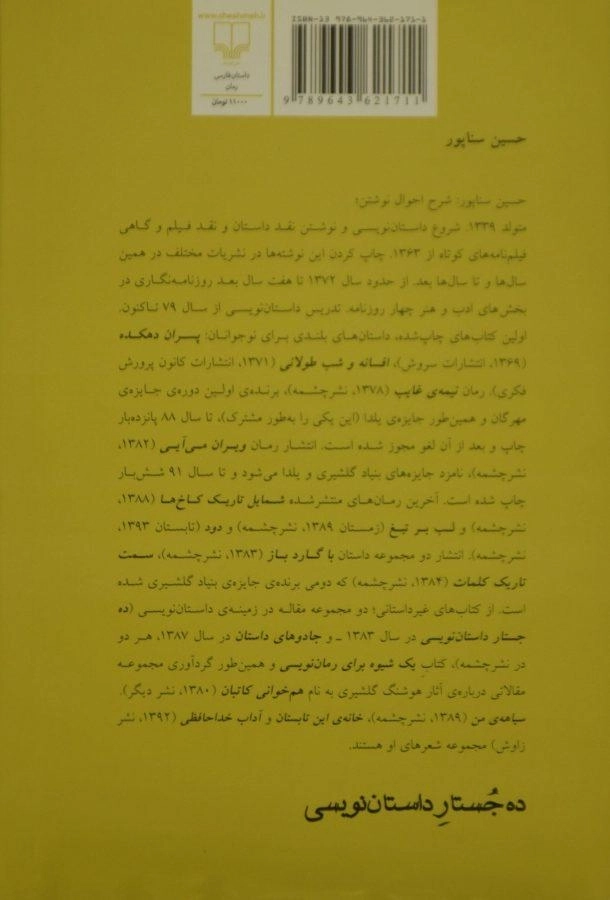 www.cheshmeh.ir
داستان فارسی
رمان
۱۱۰۰۰ تومان
ISBN-13 978-964-362-171-1
9 789643 621711
حسین سناپور
حسین سناپور: شرح احوال نوشتن؛
متولد ۱۳۳۹. شروع داستان‌نویسی و نوشتن نقد داستان و نقد فیلم و گاهی
فیلم‌نامه‌های کوتاه از ۱۳۶۳. چاپ کردن این نوشته‌ها در نشریات مختلف در همین
سال‌ها و تا سال‌ها بعد. از حدود سال ۱۳۷۲ تا هفت سال بعد روزنامه‌نگاری در
بخش‌های ادب و هنر چهار روزنامه. تدریس داستان‌نویسی از سال ۷۹ تاکنون.
اولین کتاب‌های چاپ‌شده، داستان‌های بلندی برای نوجوانان: پسران دهکده
(۱۳۶۹، انتشارات سروش)، افسانه و شب طولانی (۱۳۷۱، انتشارات کانون پرورش
فکری). رمان نیمه‌ی غایب (۱۳۷۸، نشرچشمه)، برنده‌ی اولین دوره‌ی جایزه‌ی
مهرگان و همین‌طور جایزه‌ی یلدا (این یکی را به‌طور مشترک)، تا سال ۸۸ پانزده‌بار
چاپ و بعد از آن لغو مجوز شده است. انتشار رمان ویران می‌آیی (۱۳۸۲،
نشرچشمه)، نامزد جایزه‌های بنیاد گلشیری و یلدا می‌شود و تا سال ۹۱ شش‌بار
چاپ شده است. آخرین رمان‌های منتشرشده شمایل تاریک کاخ‌ها (۱۳۸۸،
نشرچشمه) و لب بر تیغ (زمستان ۱۳۸۹، نشرچشمه) و دود (تابستان ۱۳۹۳،
نشرچشمه). انتشار دو مجموعه داستان با گارد باز (۱۳۸۳، نشرچشمه)، سمت
تاریک کلمات (۱۳۸۴، نشرچشمه) که دومی برنده‌ی جایزه‌ی بنیاد گلشیری شده
است. از کتاب‌های غیرداستانی؛ دو مجموعه مقاله در زمینه‌ی داستان‌نویسی (ده
جستار داستان‌نویسی در سال ۱۳۸۳ ـ و جادوهای داستان در سال ۱۳۸۷، هر دو
در نشرچشمه)، کتاب یک شیوه برای رمان‌نویسی و همین‌طور گردآوری مجموعه
مقالاتی درباره‌ی آثار هوشنگ گلشیری به نام هم‌خوانی کاتبان (۱۳۸۰، نشر دیگر).
سیاهه‌ی من (۱۳۸۹، نشرچشمه)، خانه‌ی این تابستان و آداب خداحافظی (۱۳۹۲، نشر
زاوش) مجموعه شعرهای او هستند.
ده جُستارِ داستان‌نویسی